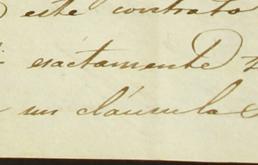 este contrato
exactamente
sus cláusulas